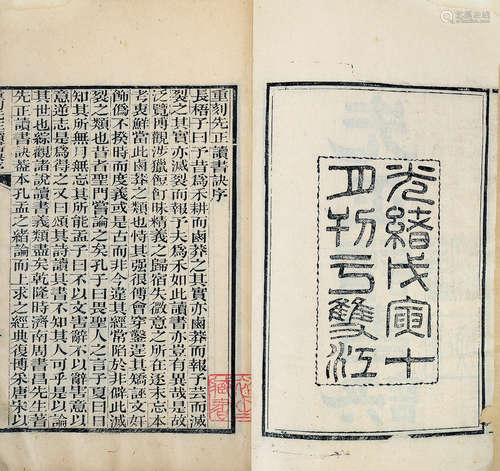 光緒戊寅十
月刊亏雙江
重刻先正讀書訣序
長梧子曰昔為禾耕而鹵莽之其實亦鹵莽而報予芸而滅
裂之其實亦滅裂而報予夫為禾如此讀書亦豈有異哉是故
泛覽博觀涉獵飣餖味精義之歸宿失微意之所在逐末忘本
考衷鮮當此鹵莽之類也恃其強很傅會穿鑿逞其矯誣文奸
飾偽不揆時而度義或是古而非今違其經常陷於非僻此滅
裂之類也昔者聖門嘗論之矣孔子曰畏聖人之言子夏曰日
知其所無月無忘其所能孟子曰不以文害辭不以辭害意以
意逆志是為得之又曰頌其詩讀其書不知其人可乎是以論
其世也綜觀諸說讀書義類盡矣乾隆時濟南周書昌先生著
先正讀書訣蓋本孔孟之緒論而上求之經典復博采唐宋以